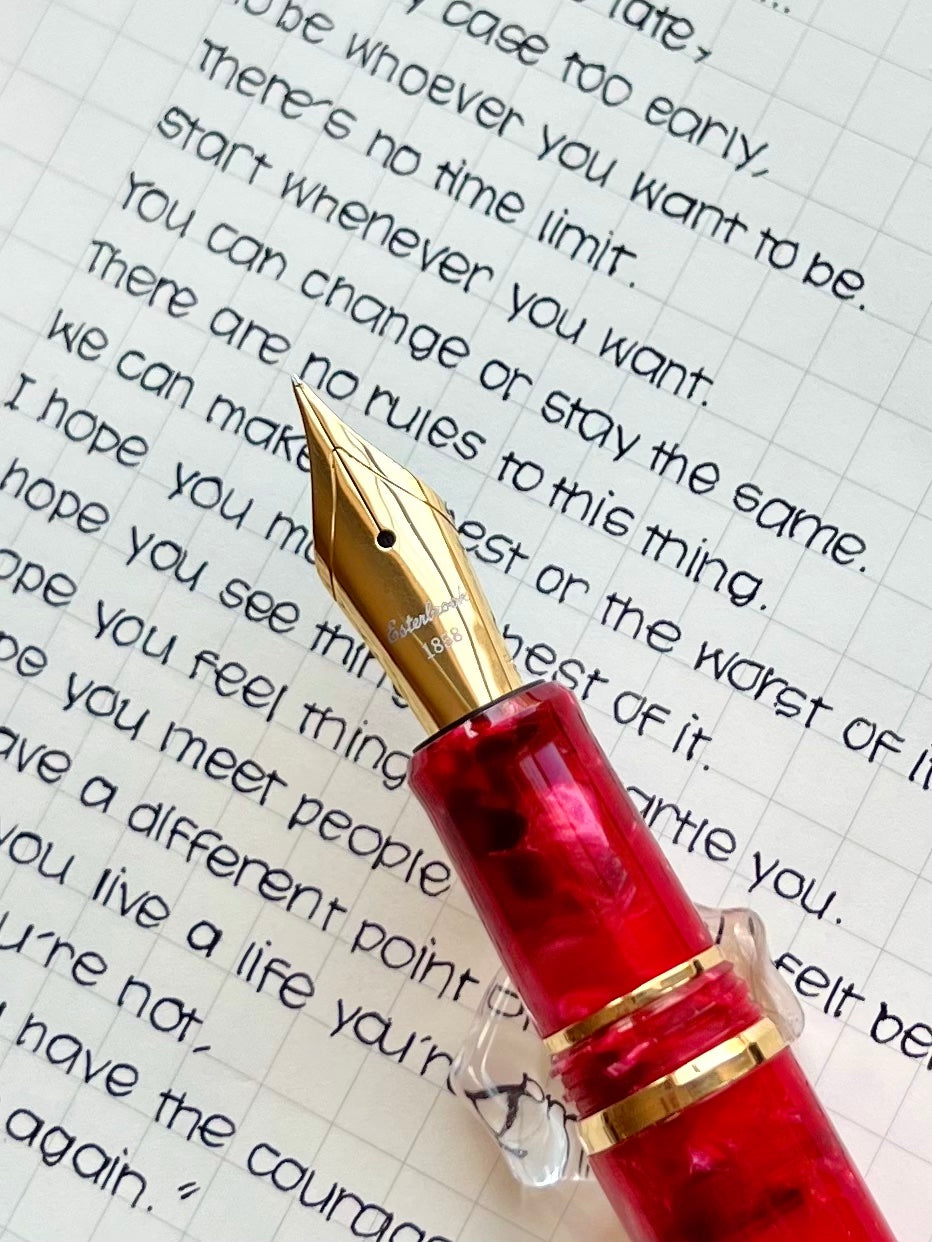 late,
case too early,
be whoever you want to be.
There's no time limit.
start whenever you want.
You can change or stay the same.
There are no rules to this thing.
We can make est or the worst of it
I hope you best of it.
hope you see thing artle you.
ope you feel thing felt be
pe you meet people
ave a different point
you live a life you're
u're not,
have the courage
again."
Esterbrook
1858